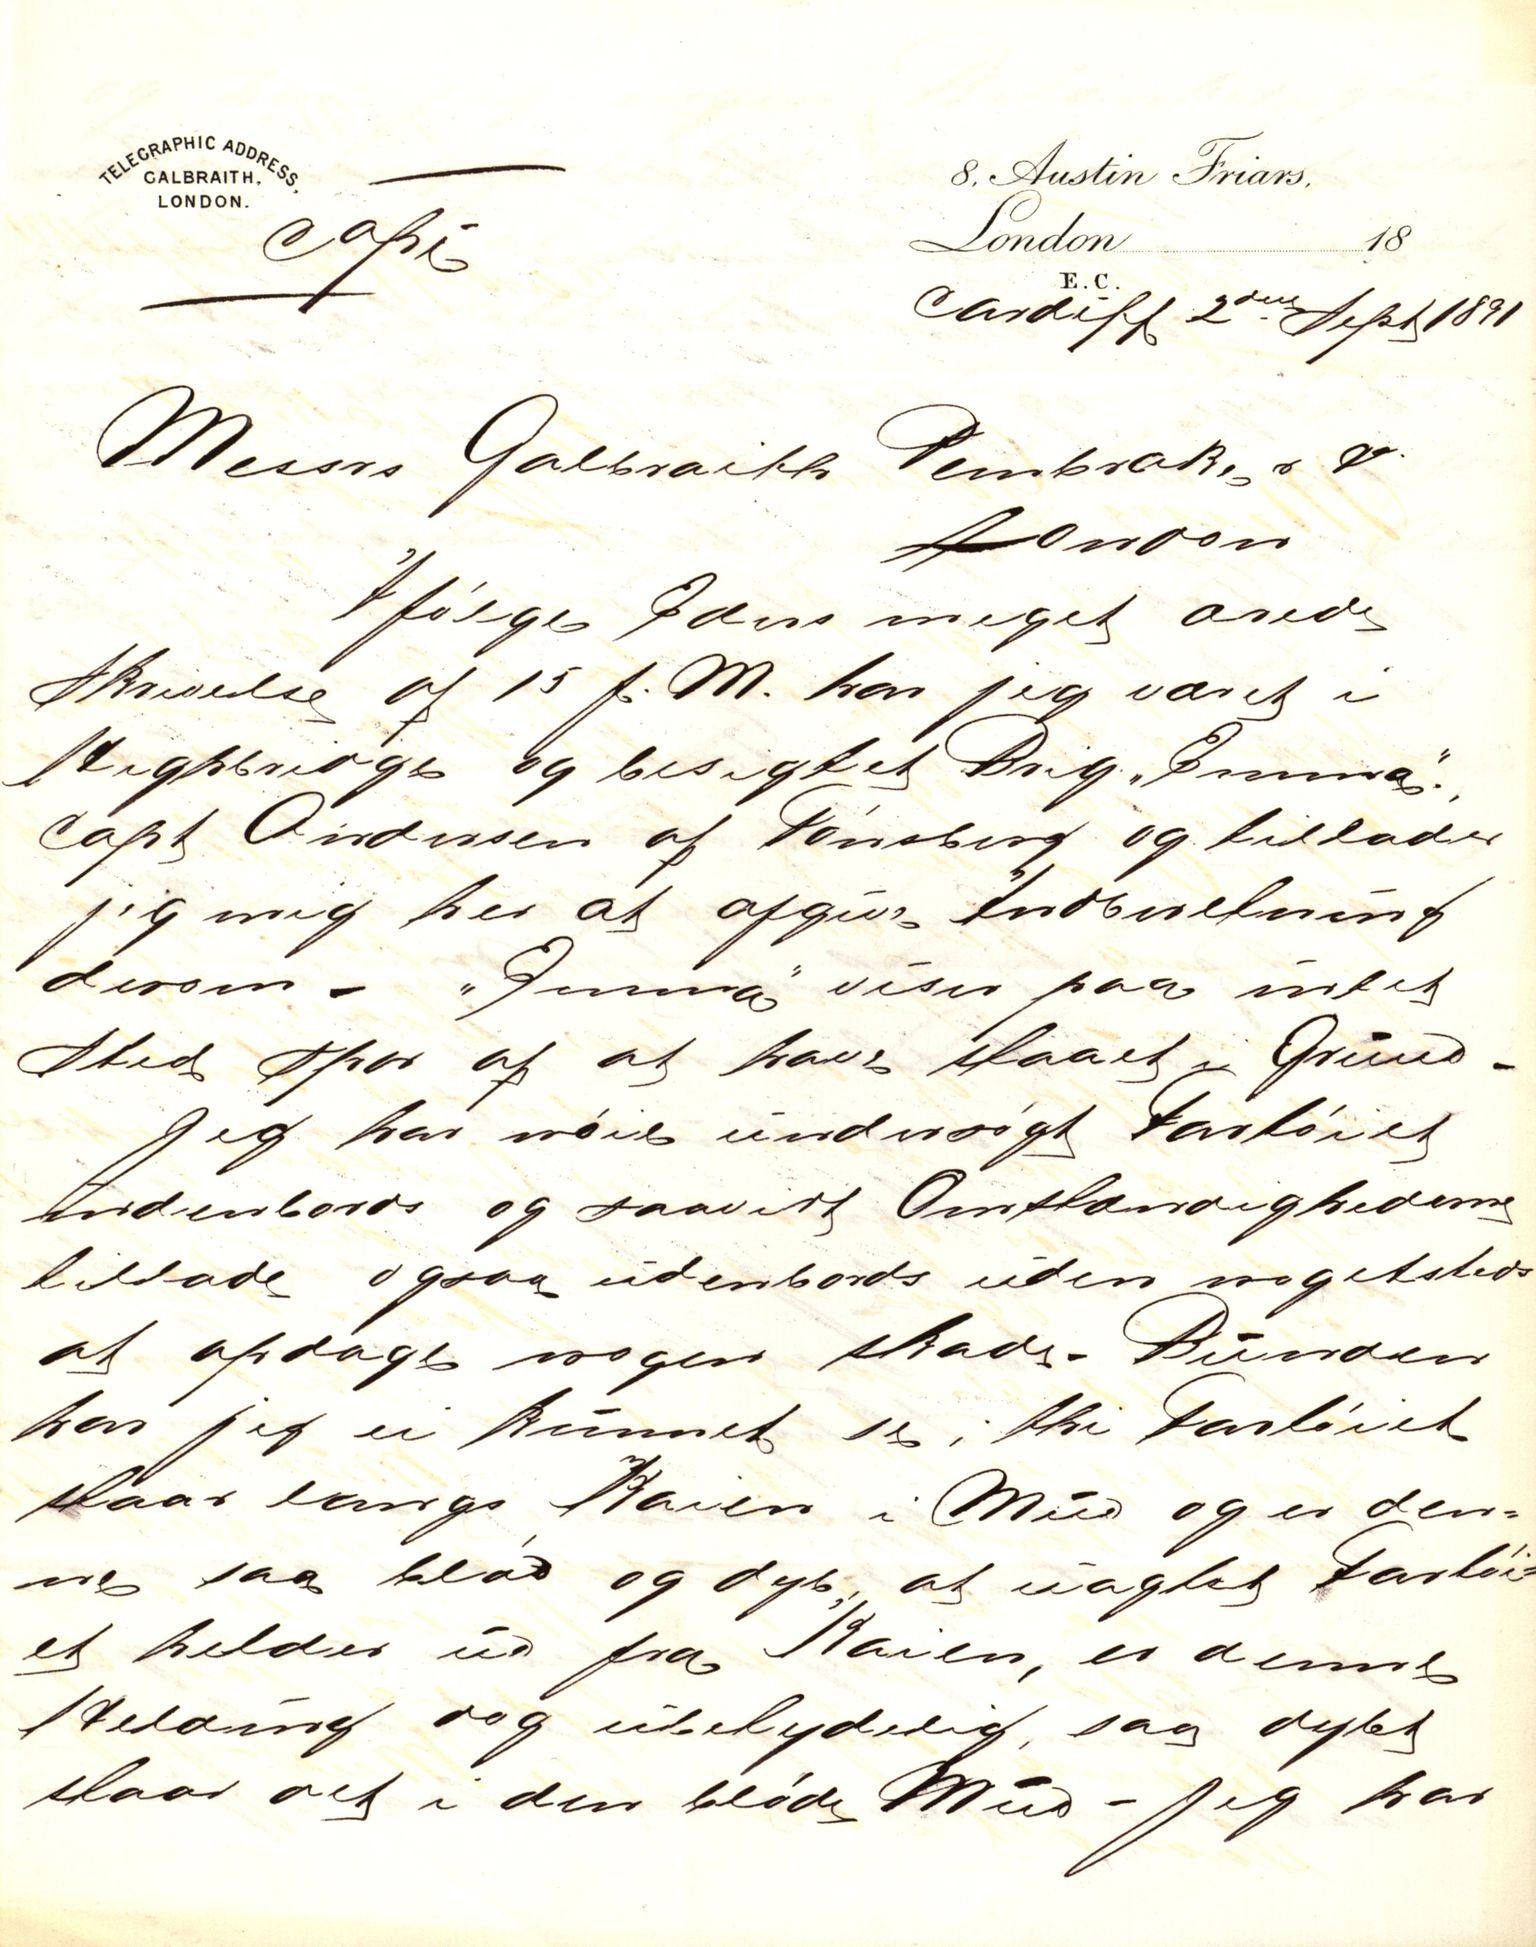 TELEGRAPHIC ADDRESS,
GALBRAITH,
LONDON.
Copi
8, Austin Friars,
London 18
E.C.
Cardiff 2den Sept 1891
Messrs Galbraith Pembroke & Co
London
Ifölge Eders meget ærede
Skrivelse af 15 f. M. har jeg været i
Highbridge og besigtet Brig „Emma",
Capt Andersen af Tönsberg og tillader
jeg mig her at afgive Indberetning
derom - „Emma" viser paa intet
Sted Spor af at have staaet i Grund -
Jeg har nöie undersögt Fartöiet
indenbords og saavidt Omstændighederne
tillade ogsaa udenbords uden nogetsteds
at opdage nogen skade - Bunden
har jeg ei kunnet se, thi Fartöiet
staar langs Kaien i Mud og er den=
ne saa blöd og dyb, at uagtet Fartöi=
et helder ud fra Kaien, er denne
Helding dog ubetydelig, saa dybt
staar det i den blöde Mud - Jeg har